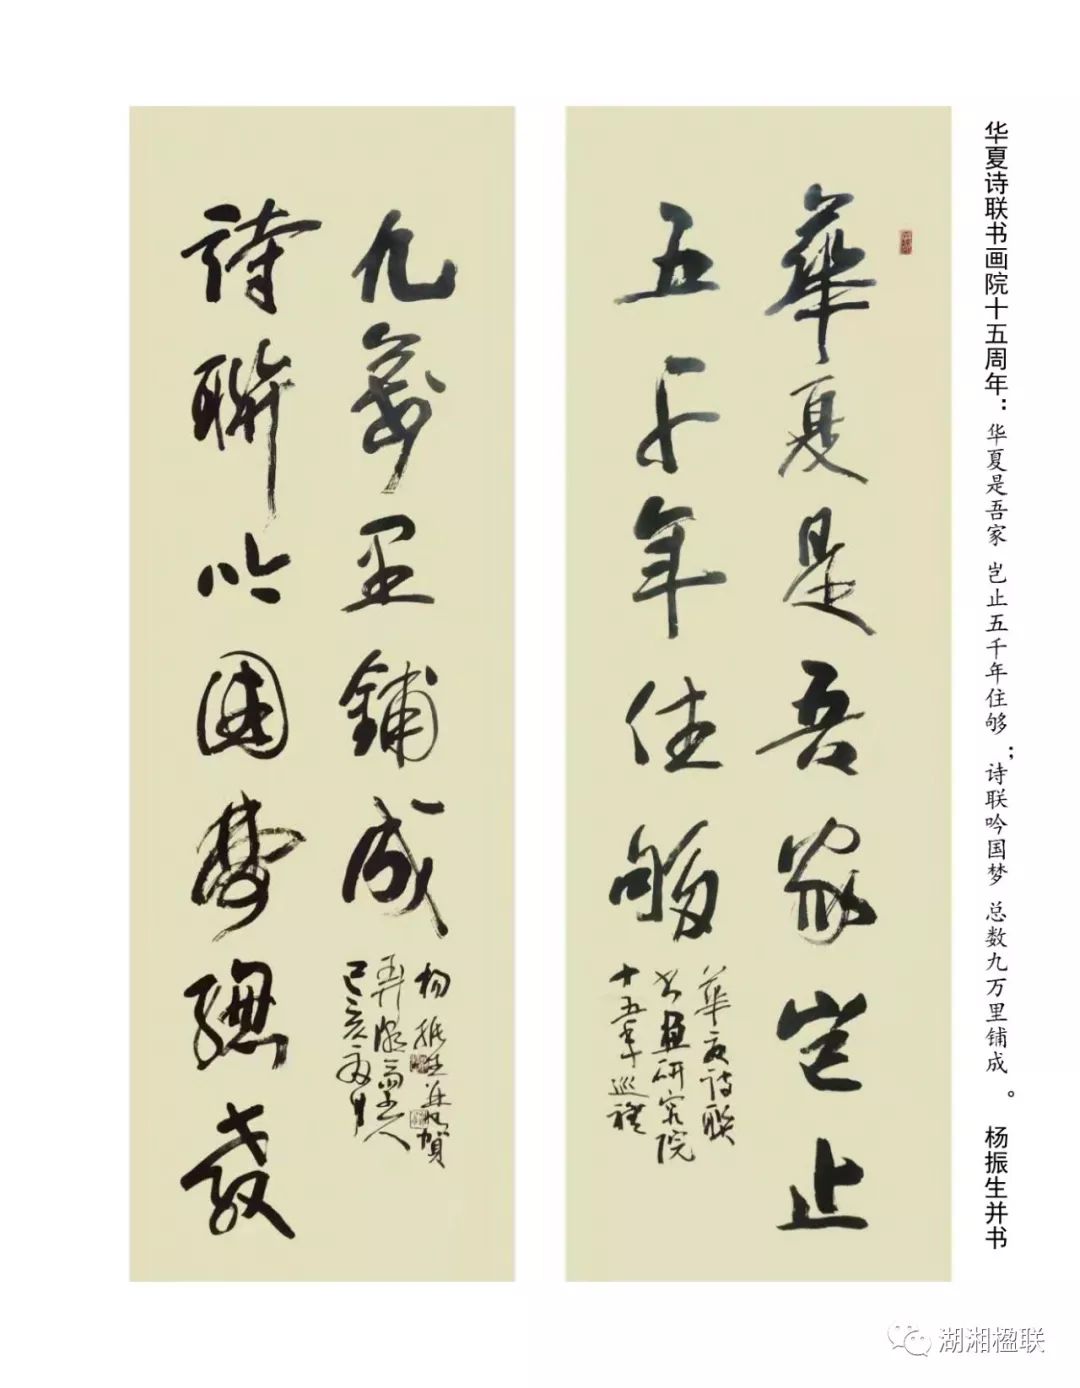 华夏诗联书画院十五周年：华夏是吾家 岂止五千年住够；诗联吟国梦 总数九万里铺成。 杨振生并书
華夏是吾家岂止
五千年住够
華夏诗联
书画研究院
十五年巡礼
詩聯吟國夢總數
九萬里鋪成
杨振生并贺
己亥
湖湘楹联